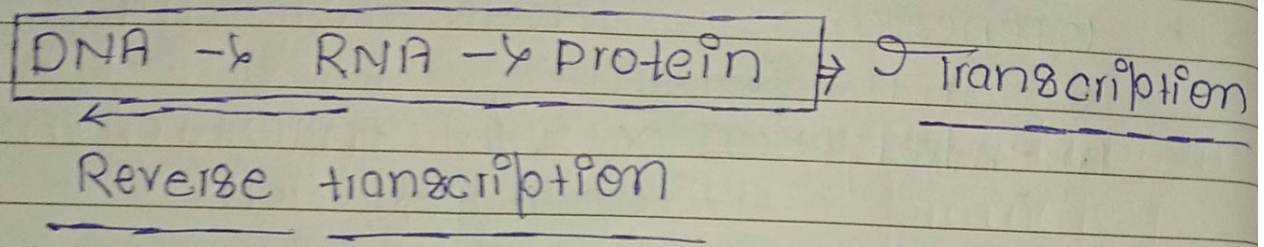 DNA → RNA → Protein ⇒ Transcription
←
Reverse transcription